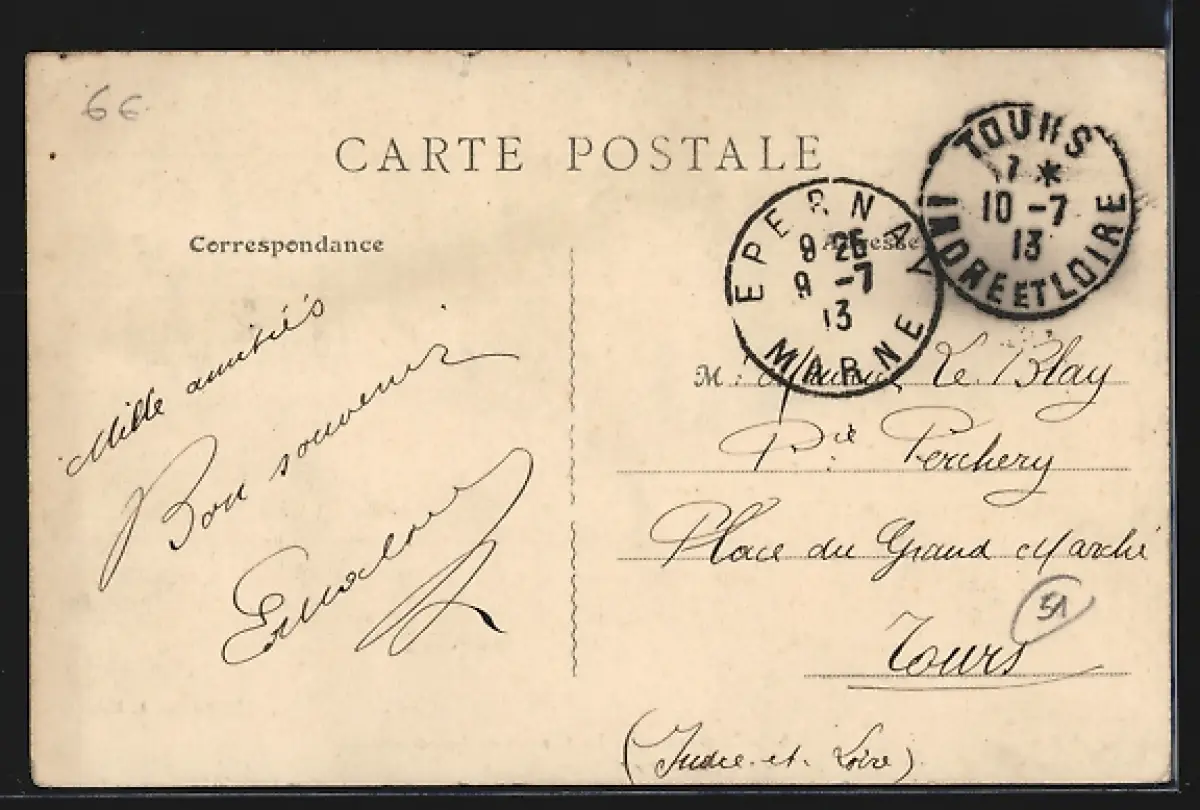 6€
CARTE POSTALE
Correspondance
Adresse
TOURS
7 *
10 -7
13
INDRE ET LOIRE
EPERNAY
9 25
9 -7
13
MARNE
Mille amitiés
Bon souvenir
M. Le Blay
Pie Perchery
Place du Grand Marché
51
Tours
(Indre-et-Loire)